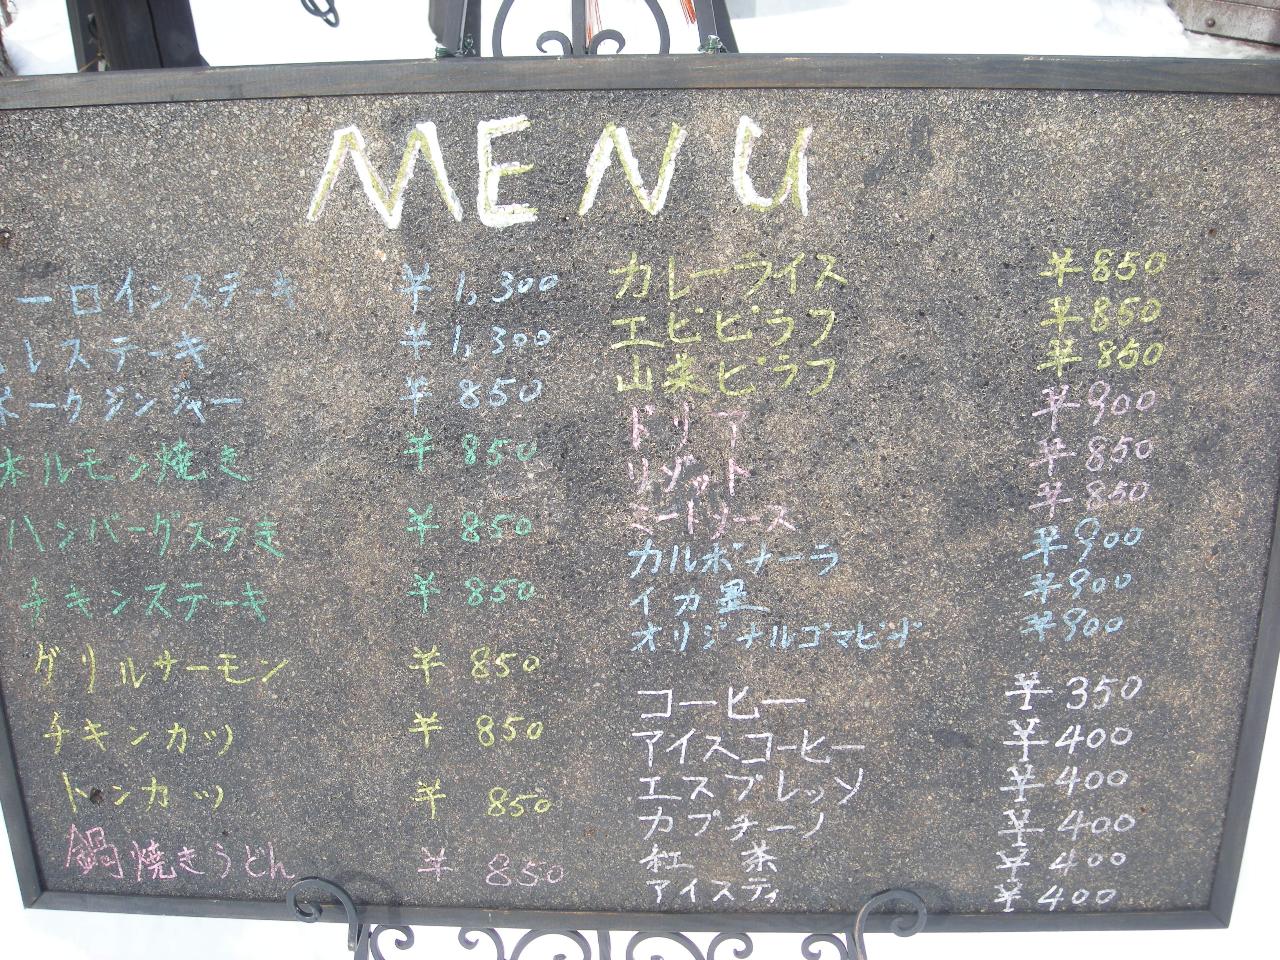 MENU
ーロインステーキ ¥1,300
レステーキ ¥1,300
ポークジンジャー ¥850
ホルモン焼き ¥850
ハンバーグステき ¥850
チキンステーキ ¥850
グリルサーモン ¥850
チキンカツ ¥850
トンカツ ¥850
鍋焼きうどん ¥850
カレーライス ¥850
エビピラフ ¥850
山菜ピラフ ¥850
ドリア ¥900
リゾット ¥850
ミートソース ¥850
カルボナーラ ¥900
イカ墨 ¥900
オリジナルゴマ ¥900
コーヒー ¥350
アイスコーヒー ¥400
エスプレッソ ¥400
カプチーノ ¥400
紅茶 ¥400
アイスティ ¥400